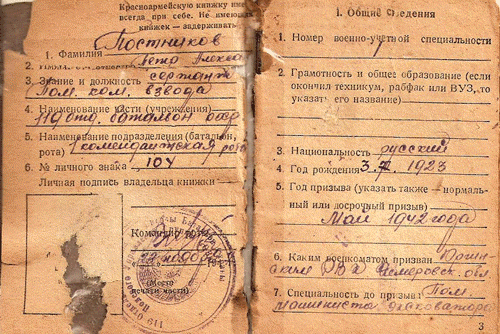 Красноармейскую книжку име
всегда при себе. Не имеющ
книжек — задерживать
1. Фамилия Постников
2. Петр
3. Звание и должность сержант
Пом. ком. взвода
4. Наименование части (учреждения)
119 отд. батальон
5. Наименование подразделения (батальон,
рота) 1 комендантская рота
6. № личного знака 104
Личная подпись владельца книжки
Командир роты
(Место
печати части)
I. Общие сведения
1. Номер военно-учетной специальности
2. Грамотность и общее образование (если
окончил техникум, рабфак или ВУЗ, то
указать его название)
3. Национальность русский
4. Год рождения 1923
5. Год призыва (указать также — нормаль-
ный или досрочный призыв)
Май 1942 года
6. Каким военкоматом призван
РВК Кемеровск. обл
7. Специальность до призыва Пом.
машиниста экскаватора
3